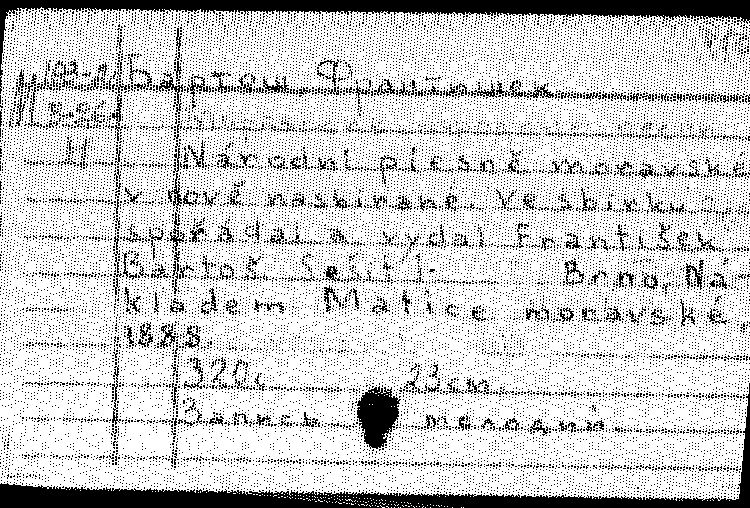 Бартош, Франтишек
Národní písně moravské
v nově nasbírané. Ve sbírku
spořádal a vydal František
Bartoš. Sešit I. Brno, Ná-
kladem Matice moravské,
1888.
320с. 23см.
Запись мелодий.